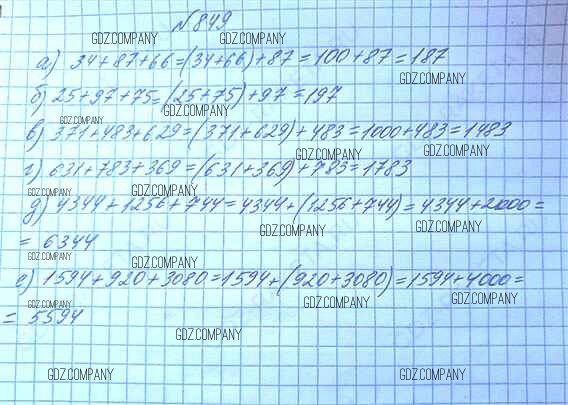 №849
GDZ.COMPANY GDZ.COMPANY
а) 34+87+66=(34+66)+87=100+87=187
GDZ.COMPANY
б) 25+97+75=(25+75)+97=197
GDZ.COMPANY GDZ.COMPANY
в) 371+483+629=(371+629)+483=1000+483=1483
GDZ.COMPANY GDZ.COMPANY
г) 631+783+369=(631+369)+783=1783
GDZ.COMPANY GDZ.COMPANY
д) 4344+1256+744=4344+(1256+744)=4344+2000=
GDZ.COMPANY GDZ.COMPANY
= 6344
GDZ.COMPANY GDZ.COMPANY
е) 1594+920+3080=1594+(920+3080)=1594+4000=
GDZ.COMPANY GDZ.COMPANY GDZ.COMPANY
= 5594
GDZ.COMPANY
GDZ.COMPANY GDZ.COMPANY